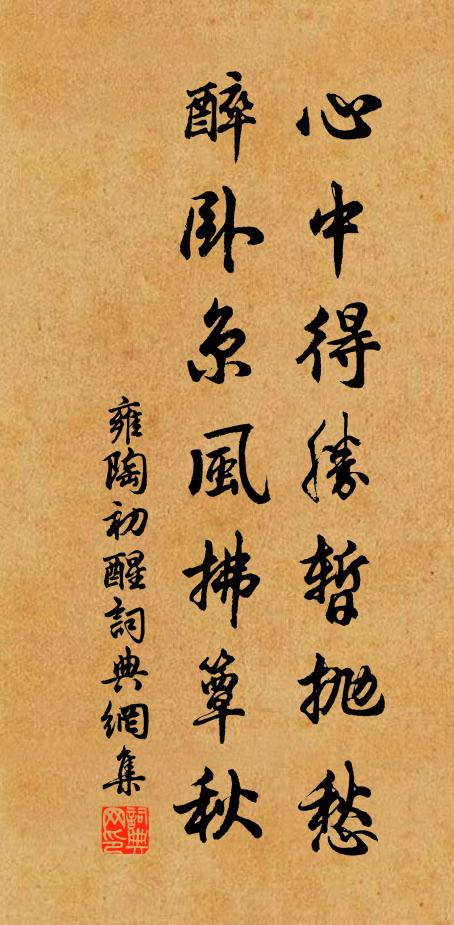 心中得勝暫抛愁
醉卧京風拂簟秋
雍陶初醒詞典網集
詞典网印